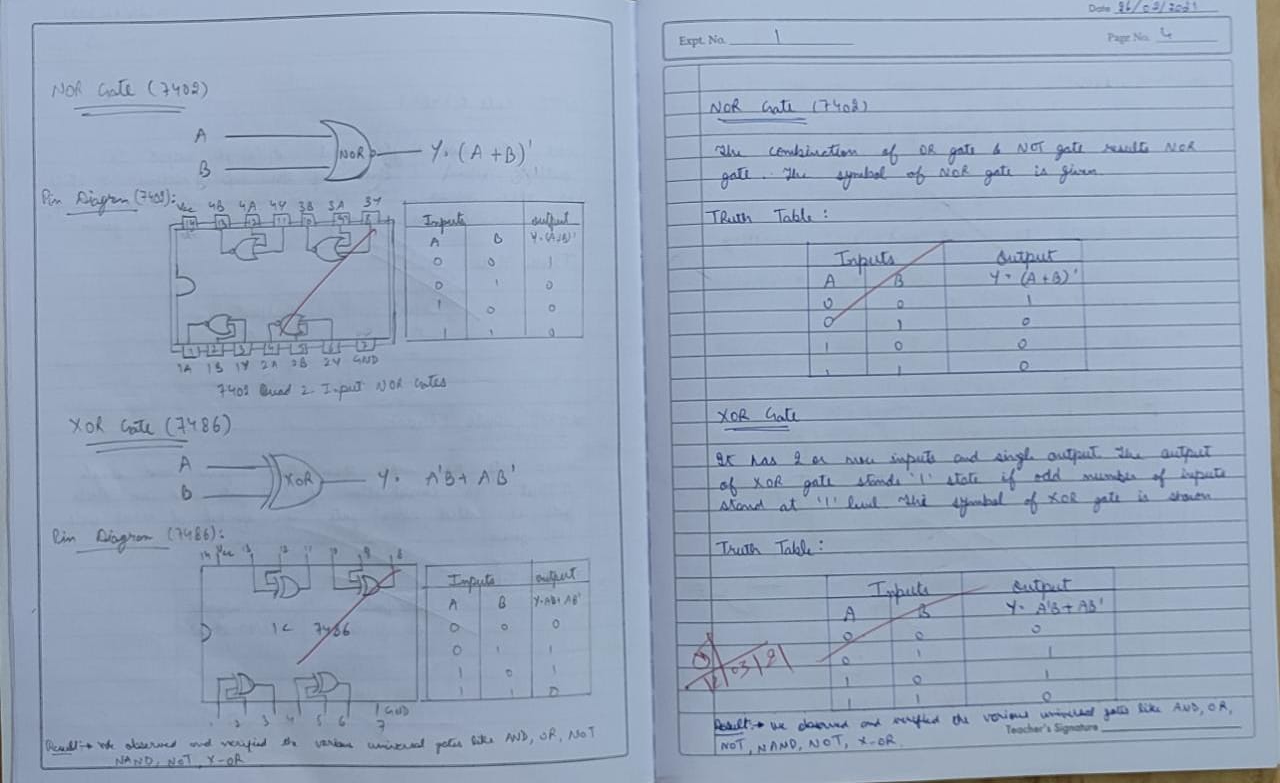 NOR Gate (7402)
A
B
NOR
Y = (A + B)'
Pin Diagram (7402):
Vcc 4B 4A 4Y 3B 3A 3Y
14 13 12 11 10 9 8
1 2 3 4 5 6 7
1A 1B 1Y 2A 2B 2Y GND
Inputs output
A B Y=(A+B)'
0 0 1
0 1 0
1 0 0
1 1 0
7402 Quad 2-Input NOR Gates
XOR Gate (7486)
A
B
XOR
Y = A'B + AB'
Pin Diagram (7486):
14 Vcc 13 12 11 10 9 8
IC 7486
1 2 3 4 5 6 7 GND
Inputs output
A B Y=A'B+AB'
0 0 0
0 1 1
1 0 1
1 1 0
Result:→ We observed and verified the various universal gates like AND, OR, NOT
NAND, NOT, X-OR
Date 26/02/2021
Expt. No. 1
Page No. 4
NOR Gate (7402)
The combination of OR gate & NOT gate results NOR
gate. The symbol of NOR gate is given
TRuth Table:
Inputs Output
A B Y = (A + B)'
0 0 1
0 1 0
1 0 0
1 1 0
XOR Gate
It has 2 or more inputs and single output The output
of XOR gate stands '1' state if odd number of inputs
stand at '1' level The symbol of XOR gate is shown
Truth Table:
Inputs Output
A B Y = A'B + AB'
0 0 0
0 1 1
1 0 1
1 1 0
Result:→ We observed and verified the various universal gates like AND, OR,
NOT, NAND, NOT, X-OR.
Teacher's Signature